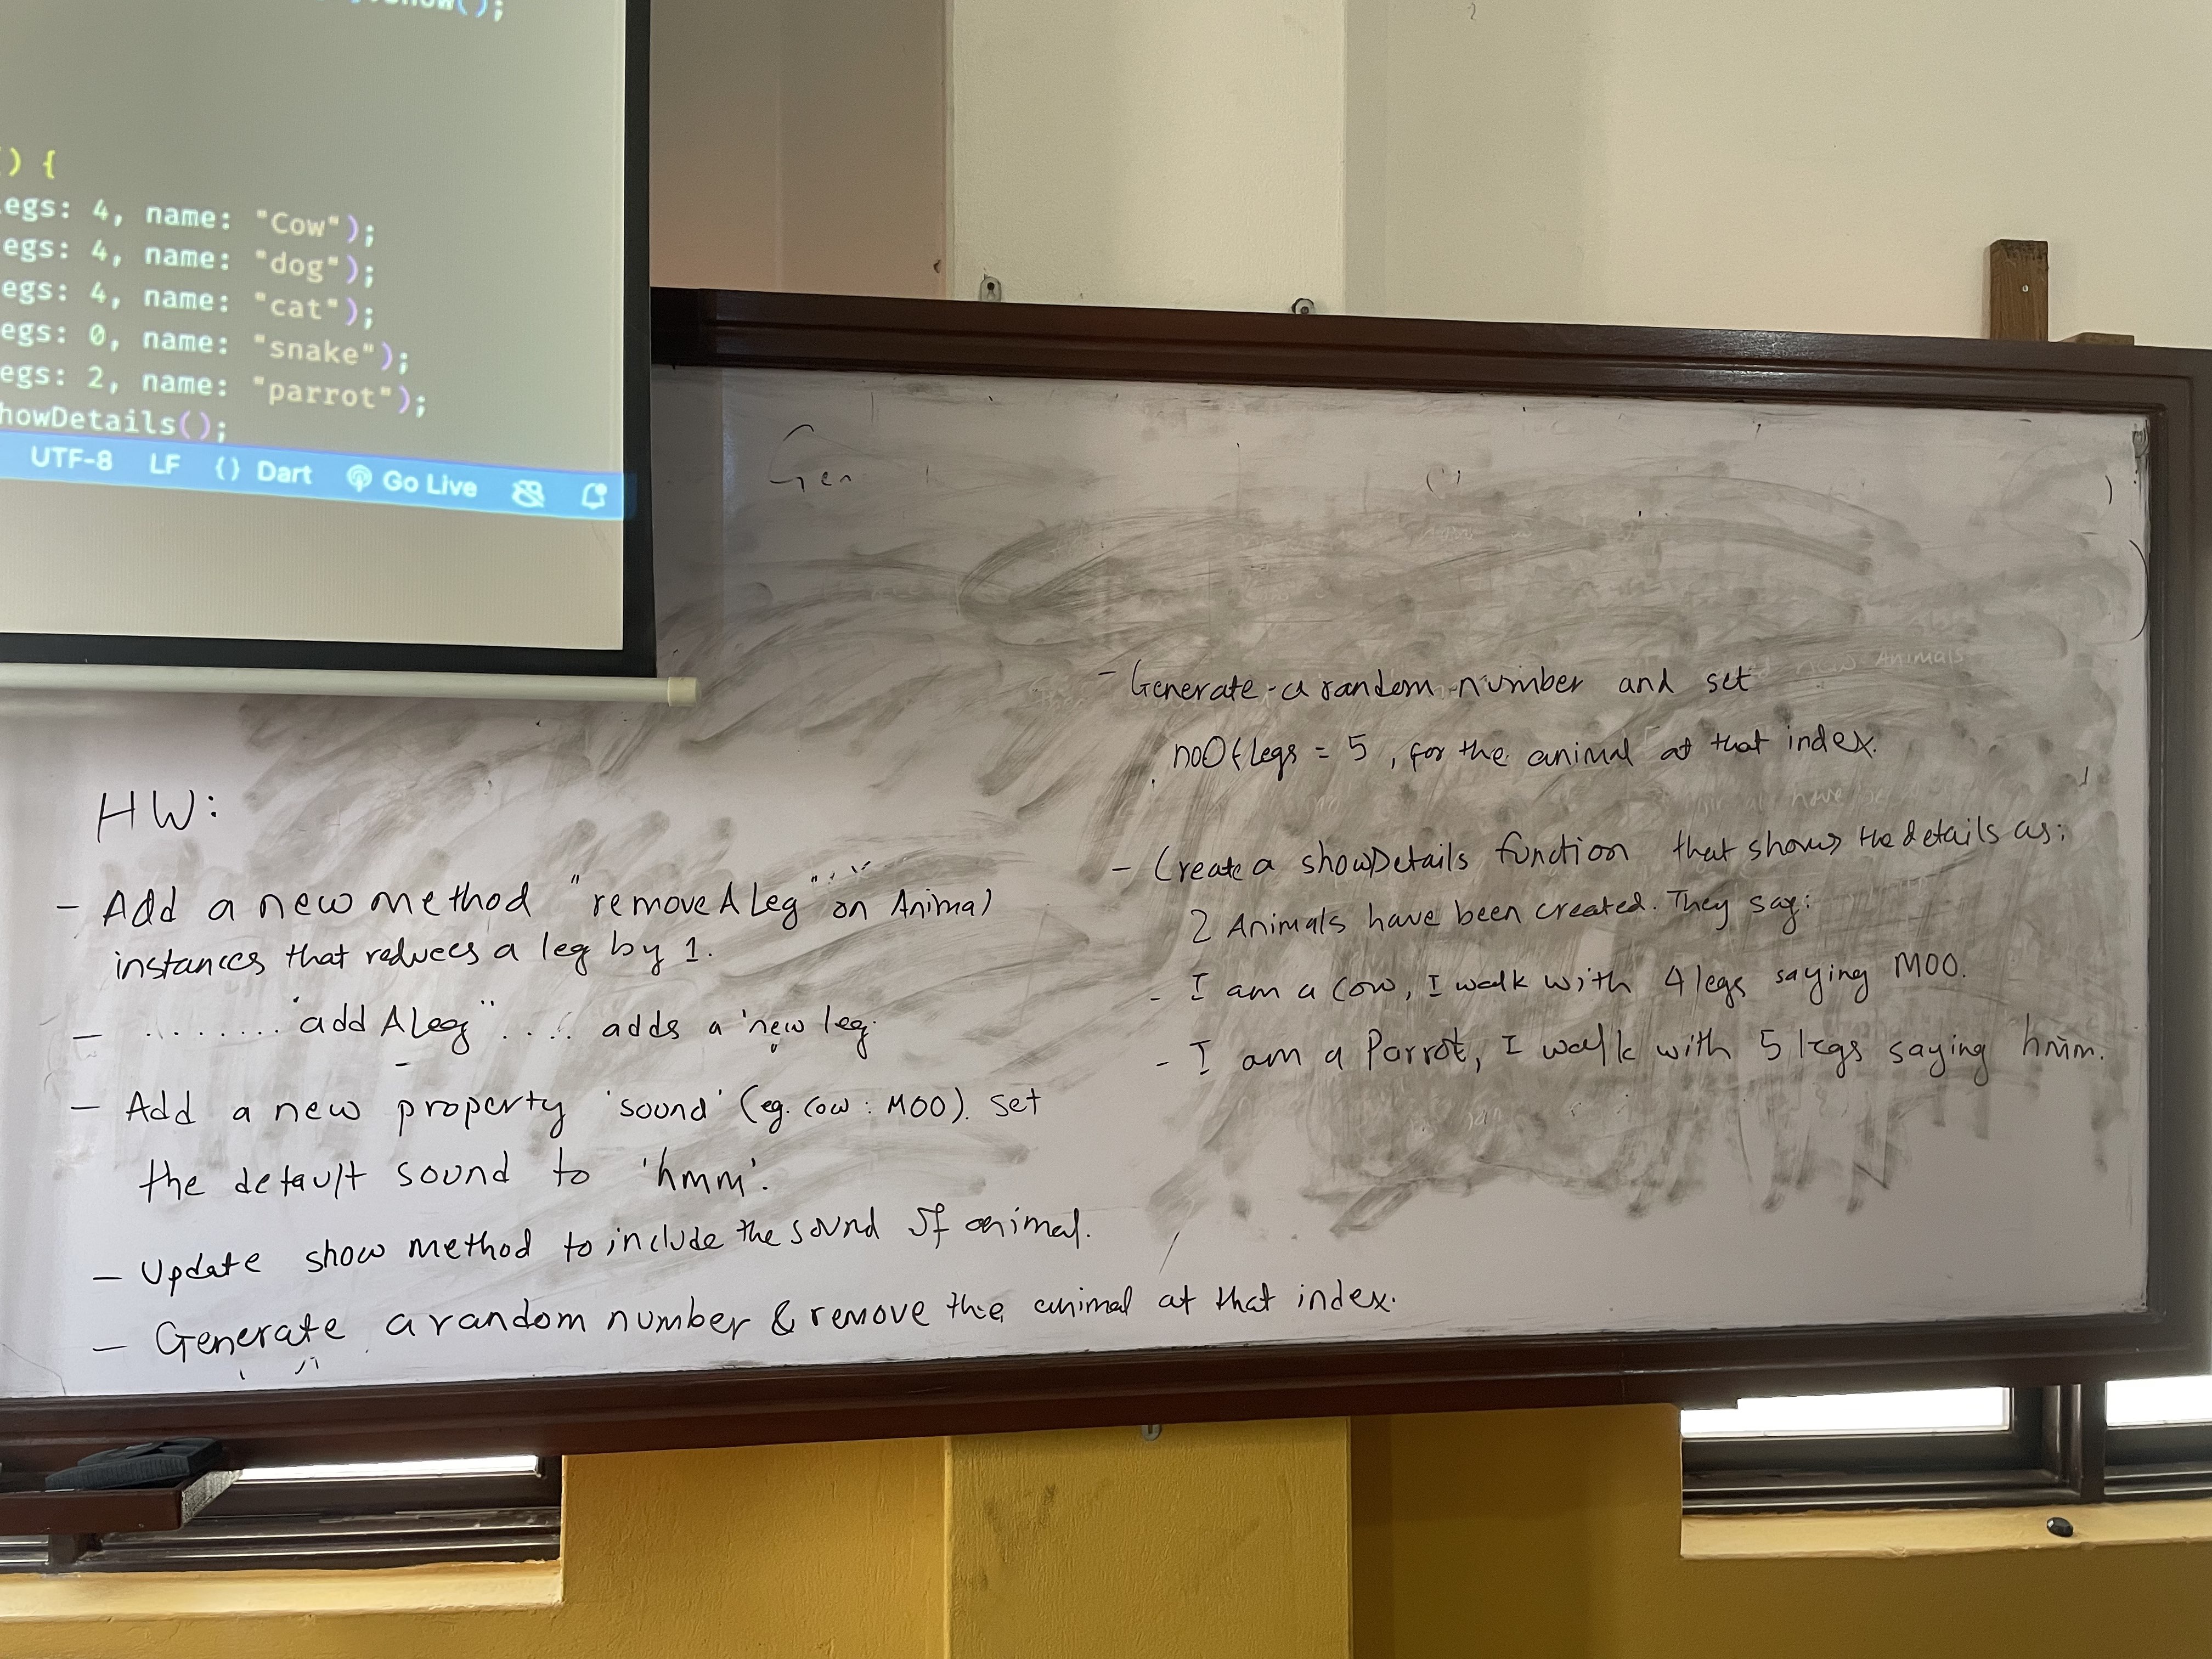 how();
() {
egs: 4, name: "Cow");
egs: 4, name: "dog");
egs: 4, name: "cat");
egs: 0, name: "snake");
egs: 2, name: "parrot");
howDetails();
UTF-8 LF {} Dart Go Live
Gen
HW:
- Add a new method "remove A Leg" on Animal
instances that reduces a leg by 1.
- ........ "add A Leg" .... adds a new leg.
- Add a new property 'sound' (eg. Cow : MOO). Set
the default sound to 'hmm'.
- Update show method to include the sound of animal.
- Generate a random number & remove the animal at that index.
- Generate a random number and set
noOfLegs = 5, for the animal at that index.
- Create a showDetails function that shows the details as:
2 Animals have been created. They say:
- I am a Cow, I walk with 4 legs saying MOO.
- I am a Parrot, I walk with 5 legs saying hmm.